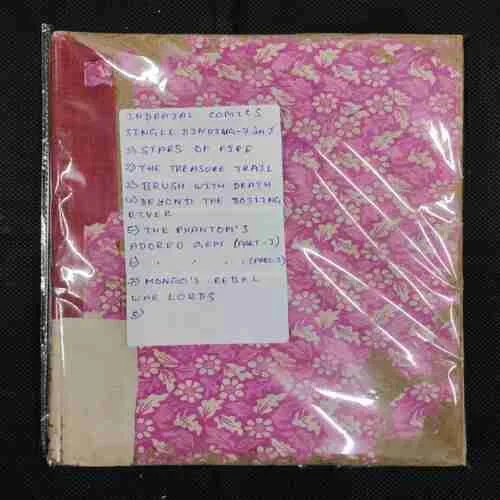 INDRAJAL COMICS
SINGLE BINDING-7 IN 1
1) STARS OF FIRE
2) THE TREASURE TRAIL
3) BRUSH WITH DEATH
4) BEYOND THE BOILING
RIVER
5) THE PHANTOM'S
ADORED GEM (PART-I)
6) " " " (PART-2)
7) MONGO'S REBAL
WAR LORDS
8)